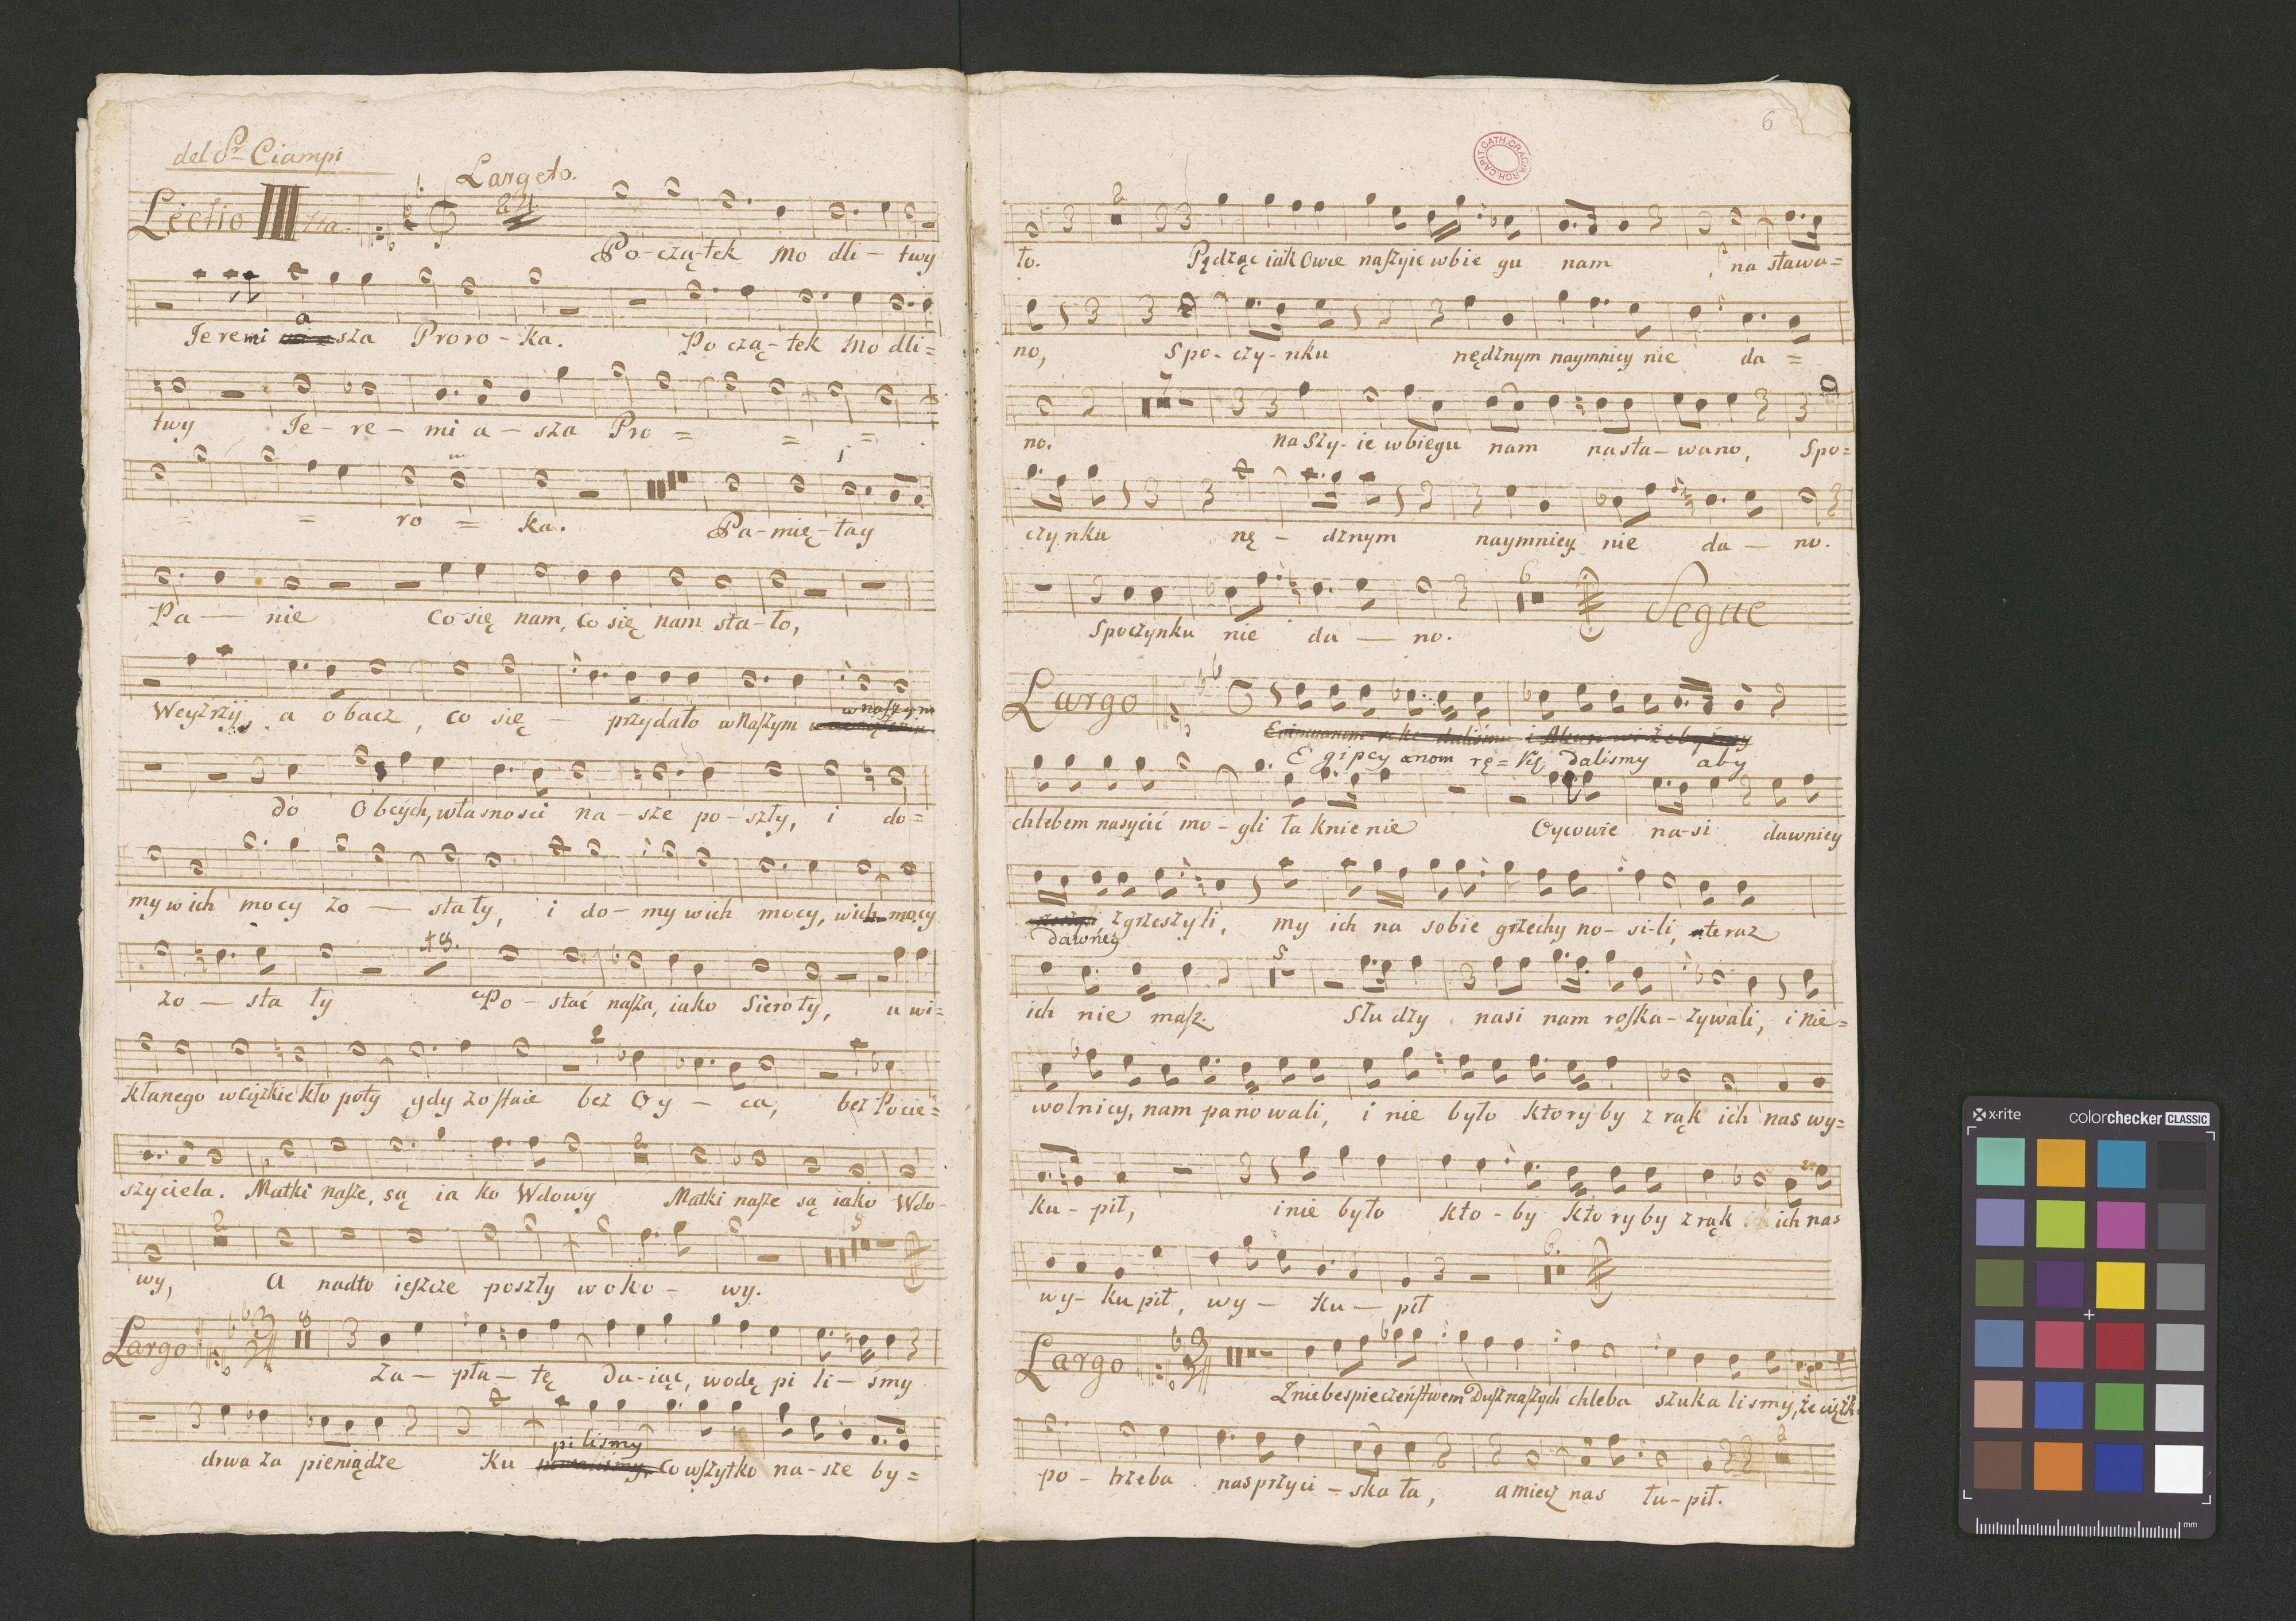 del Sr Ciampi
Largeto.
Lectio IIII ta. 24
Po-czą-tek Mo dli-twy
a
Ieremi sza Proro-ka. Po czą-tek Mo dli=
twy Ie-re-mi a-sza Pro = = =
= = ro = ka. Pa-mię-tay
Pa — nie co się nam, co się nam sta-ło,
w naszym
Weyzrzij, a obacz, co się — przydało w Naszym
do Obcych, własnosci na-sze po-szły, i do=
my w ich mocy zo — stały, i do-my w ich mocy, wich mocy
18.
zo — sta ły Po-stać nasza, iako Sieroty, u wi=
2
kłanego w ciężkie kło poty gdy zostaie bez Oy — ca, bez Pocie=
2
szyciela. Matki nasze, są ia ko Wdowy Matki nasze są iako Wdo-
2 5
wy, A nadto ieszcze poszły w oko- wy.
Largo 3 8
Za — pła — tę Da-iąc, wodę pi li — śmy
pilismy
drwa za pieniądze Ku co wszytko na-sze by=
6
ARCH. CAPIT. CATH. CRACOV.
2
ło. Pędząc iak Owce na szyie w bie gu nam na stawa=
no, Spo-czy-nku nędznym naymnicy nie da =
no. na Szy-ie w biegu nam nasta-wano, Spo=
czynku nę — dznym naymnicy nie da — no.
6 Segue
Spoczynku nie da — no.
Largo
Egipcyanom rę=kę dalismy aby
chlebem nasycić mo-gli łaknienie Oycowie na-si dawniey
zgrzeszyli, my ich na sobie grzechy no-si-li, a teraz
dawniey
5
ich nie masz. Słu dzy nasi nam roska-zywali, i Nie=
wolnicy, nam panowali, i nie było ktory by z rąk ich nas wy=
ku-pił, i nie było kto-by ktory by z rąk ich nas
6.
wy-kupił, wy — Ku — pił
Largo 3
Z niebespieczeństwem Dusz naszych chleba szuka lismy, że ciężk
2
po-trzeba nas przyci-ska ła, a miecz nas łu-pił.
x-rite colorchecker CLASSIC
mm